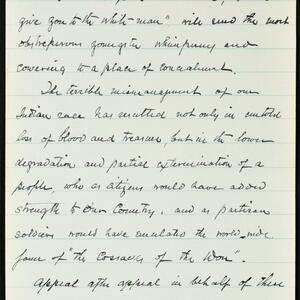 give you to the white man", will send the most
obstreperous youngster whimpering and
cowering to a place of concealment.
The terrible mismanagement of our
Indian race has resulted not only in untold
loss of blood and treasure, but in the lower
degradation and partial extermination of a
people, who as citizens would have added
strength to Our Country, and as partisan
soldiers would have emulated the world-wide
fame of "the Cossacks of the Don".
Appeal after appeal in behalf of these